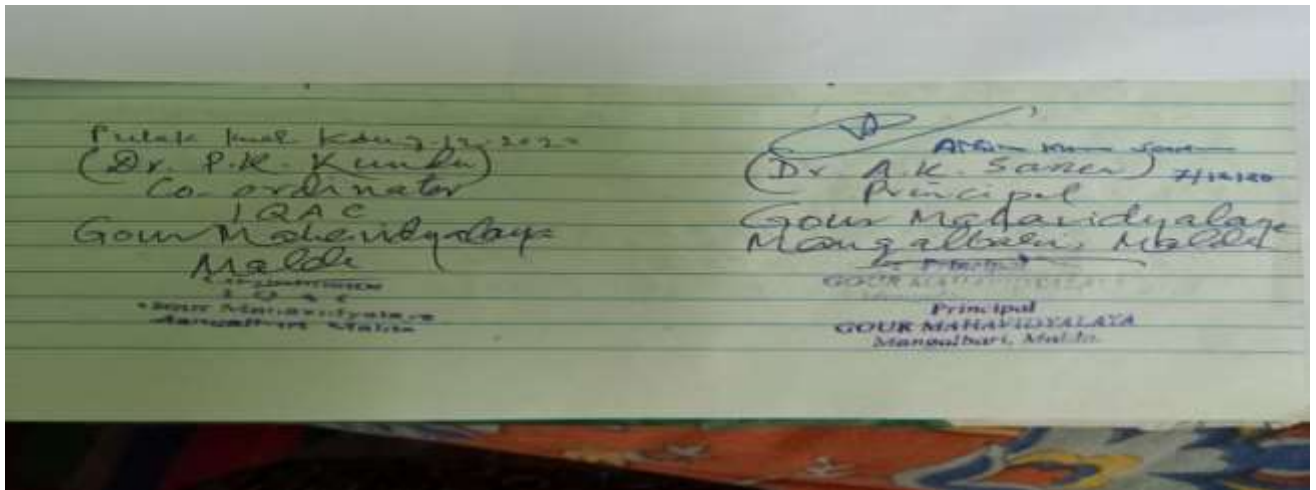 (Dr. P.K. Kundu)
Co-ordinator
IQAC
Gour Mahavidyalaya
Malda
I Q A C
Gour Mahavidyalaya
Mangalbari Malda
(Dr. A.K. Sarkar)
7/12/20
Principal
Gour Mahavidyalaya
Mangalbari, Malda
Principal
GOUR MAHAVIDYALAYA
Principal
GOUR MAHAVIDYALAYA
Mangalbari, Malda